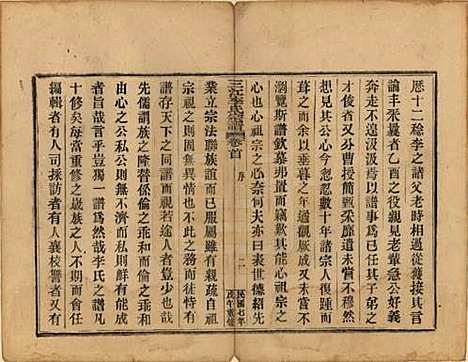 歷十二稔李之諸父老時相過從聆接其言
論丰采曩者乙酉之役親見老輩急公好義
奔走不遑汲汲焉以祖宗爲心者任其子弟之
才俊者又多曹授簡預茲采靡遺未嘗不穆
然想見其公心今忽忽數十年諸宗人
葺之而余以垂暮之年適觀厥成又未嘗不
瀏覽斯譜欽慕弗置而竊歎其能心祖宗之
心也夫心祖宗之心奈何夫亦曰表世德紹先
三江李氏宗譜
卷首
序
二
民國七年
戊午重修
業立宗法聯族誼而已服屬雖有親疏自
祖宗視之則固無異情也不此之務而徒以
譜存天下之同譜而視若途人者豈少也哉
先儒謂族之隆替係倫之乖和而倫之乖和
由心之公私公則無不濟而私則鮮有能成
者旨哉言乎豈獨一譜爲然哉李氏之譜
十修矣每一修必嚴族之人才之衆而任
編輯者有人司採訪者有人襄校讐者又有